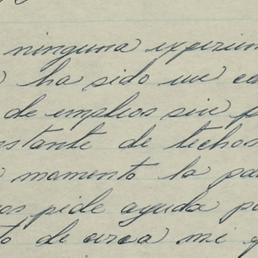 ninguna experien
ha sido un ca
de empleos sin p
nstante de techos
momento la pa
os pide ayuda p
to de cerca mi q